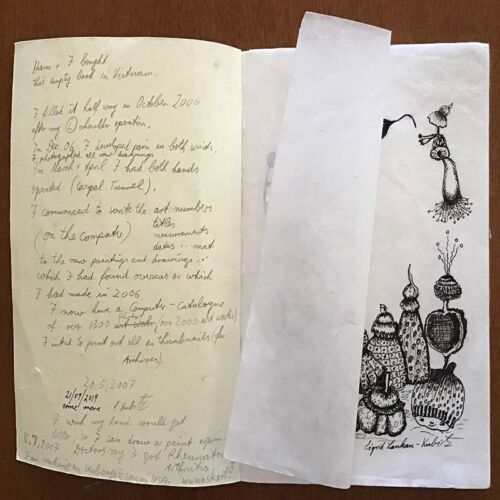 Hans + I bought
this empty book in Vietnam.
I filled it half way in October 2006
after my (L) shoulder operation.
In Dec. 06 I developed pain in both wrists.
I photographed all new drawings
in March + April I had both hands
operated (Carpal Tunnel).
I commenced to write the art numbers
(on the Computer) titles
measurements
dates .. next
to the new paintings and drawings ..
which I had found overseas or which
I had made in 2006.
I now have a Computer-Catalogue
of over 1300 art work (over 2000 art works)
I intend to print out all as thumbnails (for
Archives).
20.5.2007
21/09/2019
some more S. Kubitz
I wish my hand would get
better so I can draw or paint again
8.9.2007 Doctors say I got Rheumatoid
Arthritis
I am working on in USA,
Sigrid Lankau-Kubitz